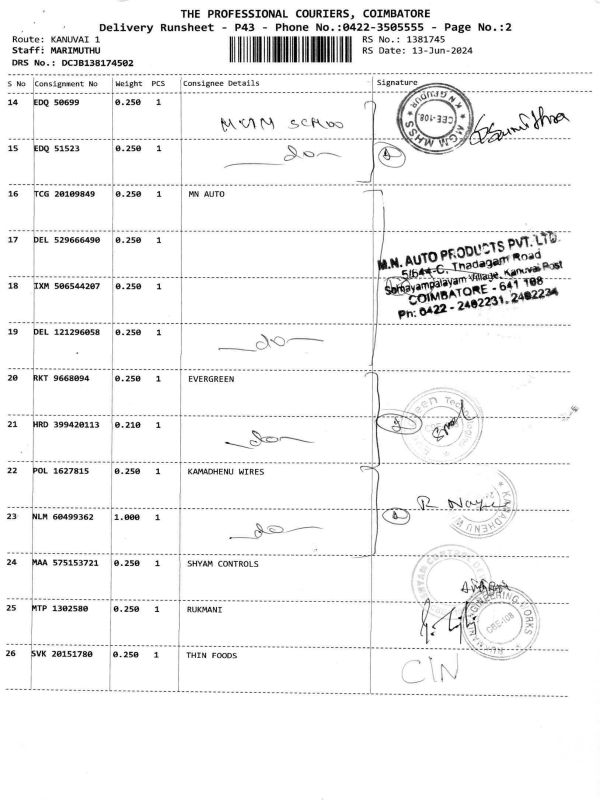 THE PROFESSIONAL COURIERS, COIMBATORE
Delivery Runsheet - P43 - Phone No.:0422-3505555 - Page No.:2
Route: KANUVAI 1 RS No.: 1381745
Staff: MARIMUTHU RS Date: 13-Jun-2024
DRS No.: DCJB138174502
S No Consignment No Weight PCS Consignee Details Signature
14 EDQ 50699 0.250 1
MGM SCHOO
MGM MHSS CBE-108
15 EDQ 51523 0.250 1
do
16 TCG 20109849 0.250 1 MN AUTO
17 DEL 529666490 0.250 1
M.N. AUTO PRODUCTS PVT. LTD.
5/644-C, Thadagam Road
Somayampalayam Village, Kanuvai Post
COIMBATORE - 641 108
Ph: 0422 - 2402231, 2402234
18 IXM 506544207 0.250 1
19 DEL 121296058 0.250 1
do
20 RKT 9668094 0.250 1 EVERGREEN
21 HRD 399420113 0.210 1
do
22 POL 1627815 0.250 1 KAMADHENU WIRES
KAMADHENU
23 NLM 60499362 1.000 1
do
24 MAA 575153721 0.250 1 SHYAM CONTROLS
25 MTP 1302580 0.250 1 RUKMANI
ENGINEERING WORKS CBE-108
26 SVK 20151780 0.250 1 THIN FOODS
CIN